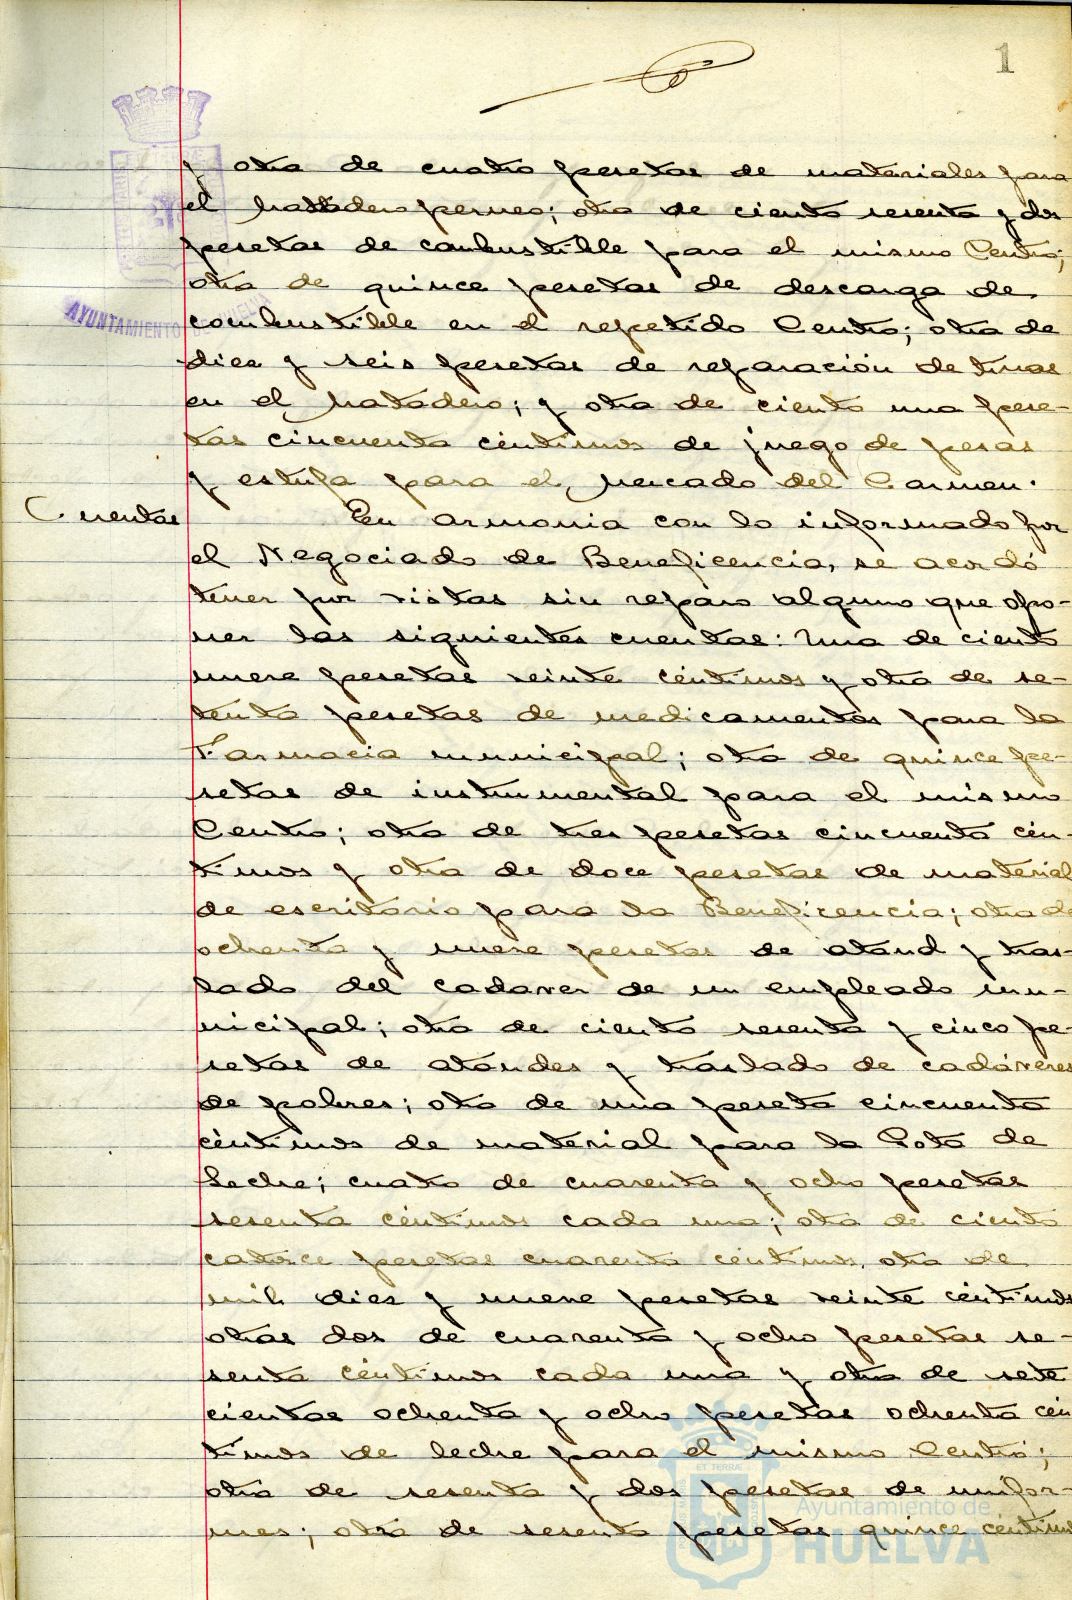 1
y otra de cuatro pesetas de materiales para
el matadero; otra de ciento sesenta y dos
pesetas de combustible para el mismo Centro;
otra de quince pesetas de descarga de
combustible en el repetido Centro; otra de
diez y seis pesetas de reparación de tinas
en el Matadero; y otra de ciento una pese-
tas cincuenta céntimos de juego de pesas
y estufa para el Mercado del Carmen.
Cuentas
En armonia con lo informado por
el Negociado de Beneficencia, se acordó
tener por vistas sin reparo alguno que opo-
ner las siguientes cuentas: Una de ciento
nueve pesetas veinte céntimos y otra de se-
tenta pesetas de medicamentos para la
Farmacia municipal; otra de quince pe-
setas de instrumental para el mismo
Centro; otra de tres pesetas cincuenta cén-
timos y otra de doce pesetas de material
de escritorio para la Beneficencia; otra de
ochenta y nueve pesetas de ataud y tras-
lado del cadaver de un empleado mu-
nicipal; otra de ciento sesenta y cinco pe-
setas de ataudes y traslado de cadáveres
de pobres; otra de una peseta cincuenta
céntimos de material para la Gota de
Leche; cuatro de cuarenta y ocho pesetas
sesenta céntimos cada una; otra de ciento
catorce pesetas cuarenta céntimos, otra de
mil diez y nueve pesetas veinte céntimos
otras dos de cuarenta y ocho pesetas se-
senta céntimos cada una y otra de sete
cientas ochenta y ocho pesetas ochenta cén
timos de leche para el mismo Centro;
otra de sesenta y dos pesetas de unifor-
mes; otra de sesenta pesetas quince céntimos
AYUNTAMIENTO DE HUELVA
Ayuntamiento de
HUELVA